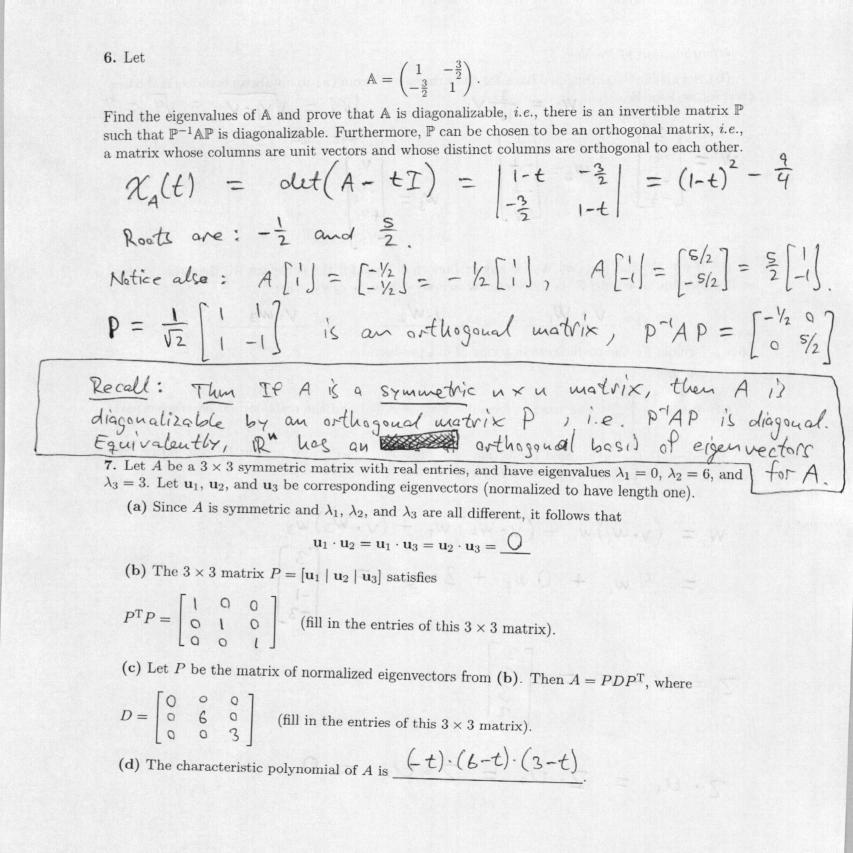 6. Let
A = ( 1 -3/2 ; -3/2 1 ) .
Find the eigenvalues of A and prove that A is diagonalizable, i.e., there is an invertible matrix P
such that P⁻¹AP is diagonalizable. Furthermore, P can be chosen to be an orthogonal matrix, i.e.,
a matrix whose columns are unit vectors and whose distinct columns are orthogonal to each other.
χ_A(t) = det(A - tI) = | 1-t -3/2 ; -3/2 1-t | = (1-t)² - 9/4
Roots are : -1/2 and 5/2 .
Notice also : A [1 ; 1] = [-1/2 ; -1/2] = -1/2 [1 ; 1] , A [1 ; -1] = [5/2 ; -5/2] = 5/2 [1 ; -1] .
P = 1/√2 [1 1 ; 1 -1] is an orthogonal matrix, P⁻¹AP = [-1/2 0 ; 0 5/2]
Recall : Thm If A is a symmetric n x n matrix, then A is
diagonalizable by an orthogonal matrix P , i.e. P⁻¹AP is diagonal.
Equivalently, ℝⁿ has an orthogonal basis of eigenvectors
for A.
7. Let A be a 3 × 3 symmetric matrix with real entries, and have eigenvalues λ₁ = 0, λ₂ = 6, and
λ₃ = 3. Let u₁, u₂, and u₃ be corresponding eigenvectors (normalized to have length one).
(a) Since A is symmetric and λ₁, λ₂, and λ₃ are all different, it follows that
u₁ · u₂ = u₁ · u₃ = u₂ · u₃ = 0
(b) The 3 × 3 matrix P = [u₁ | u₂ | u₃] satisfies
PᵀP = [1 0 0 ; 0 1 0 ; 0 0 1] (fill in the entries of this 3 × 3 matrix).
(c) Let P be the matrix of normalized eigenvectors from (b). Then A = PDPᵀ, where
D = [0 0 0 ; 0 6 0 ; 0 0 3] (fill in the entries of this 3 × 3 matrix).
(d) The characteristic polynomial of A is (-t)·(6-t)·(3-t) .